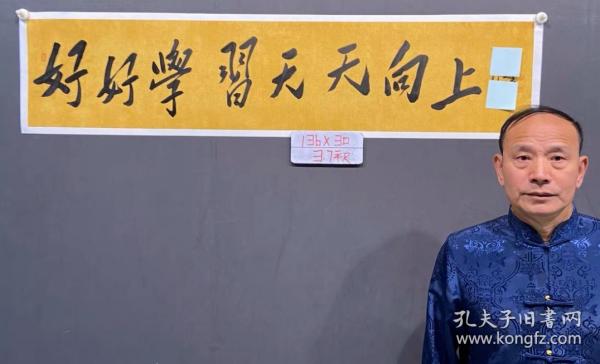 好好學習天天向上
136×30
3.7平尺
孔夫子旧書网
www.kongfz.com